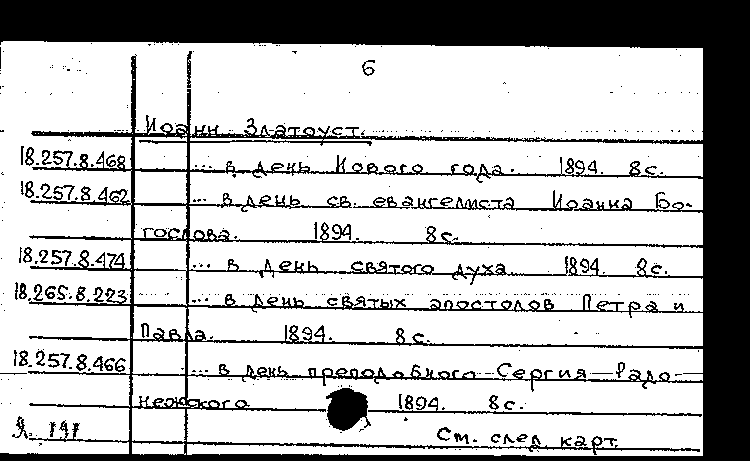 6
Иоанн Златоуст.
18.257.8.468 ... в день Нового года. 1894. 8 с.
18.257.8.462 ... в день св. евангелиста Иоанна Бо-
гослова. 1894. 8 с.
18.257.8.474 ... в день святого духа 1894. 8 с.
18.265.8.223 ... в день святых апостолов Петра и
Павла. 1894. 8 с.
18.257.8.466 ... в день преподобного Сергия Радо-
нежского 1894. 8 с.
См. след карт.